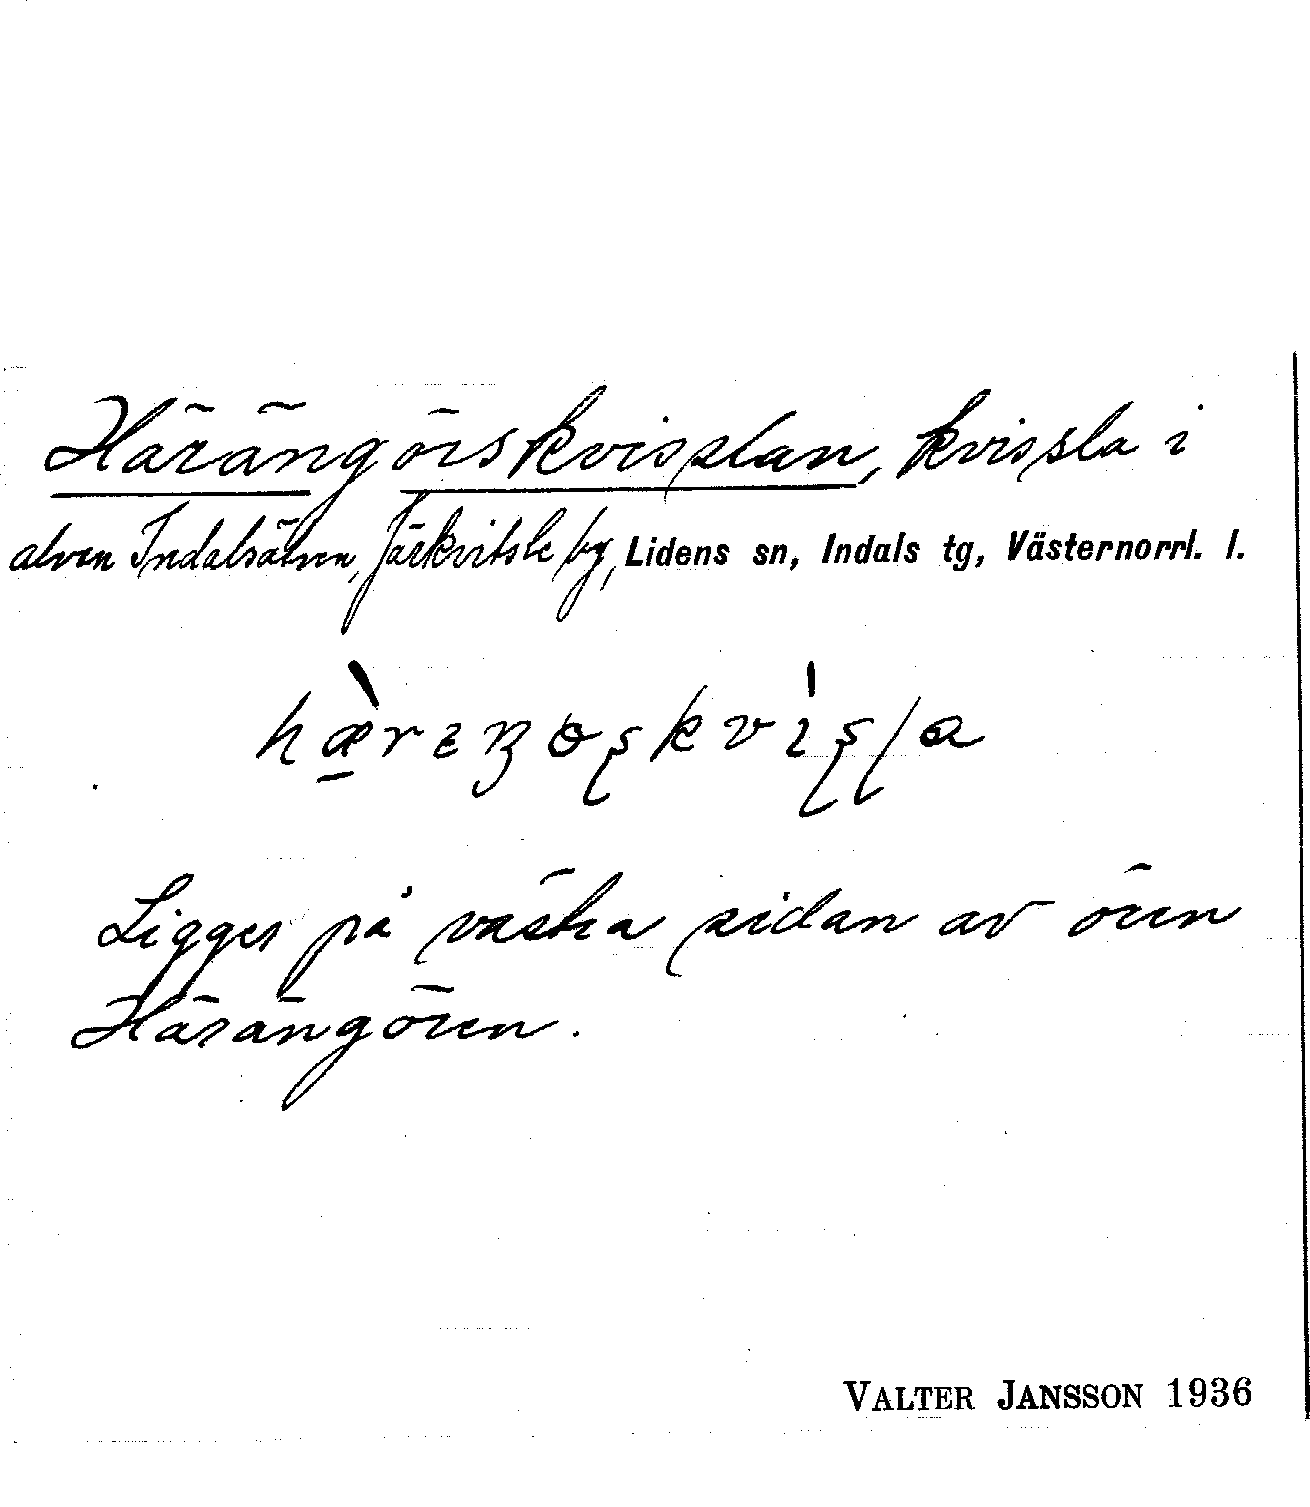 Härängörskvisslan, kvissla i
älven Indalsälven, Järkvitsle by, Lidens sn, Indals tg, Västernorrl. l.
Ligger på västra sidan av ören
Härängören.
VALTER JANSSON 1936